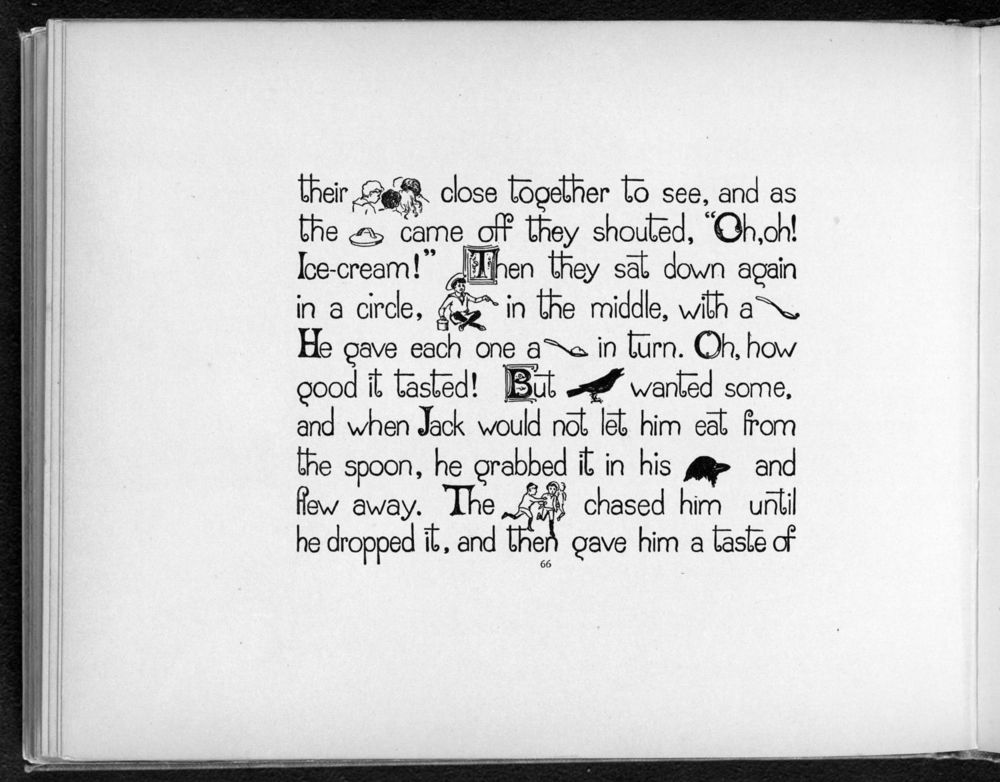 their close together to see, and as
the came off they shouted, "Oh, oh!
Ice-cream!" Then they sat down again
in a circle, in the middle, with a
He gave each one a in turn. Oh, how
good it tasted! But wanted some,
and when Jack would not let him eat from
the spoon, he grabbed it in his and
flew away. The chased him until
he dropped it, and then gave him a taste of
66